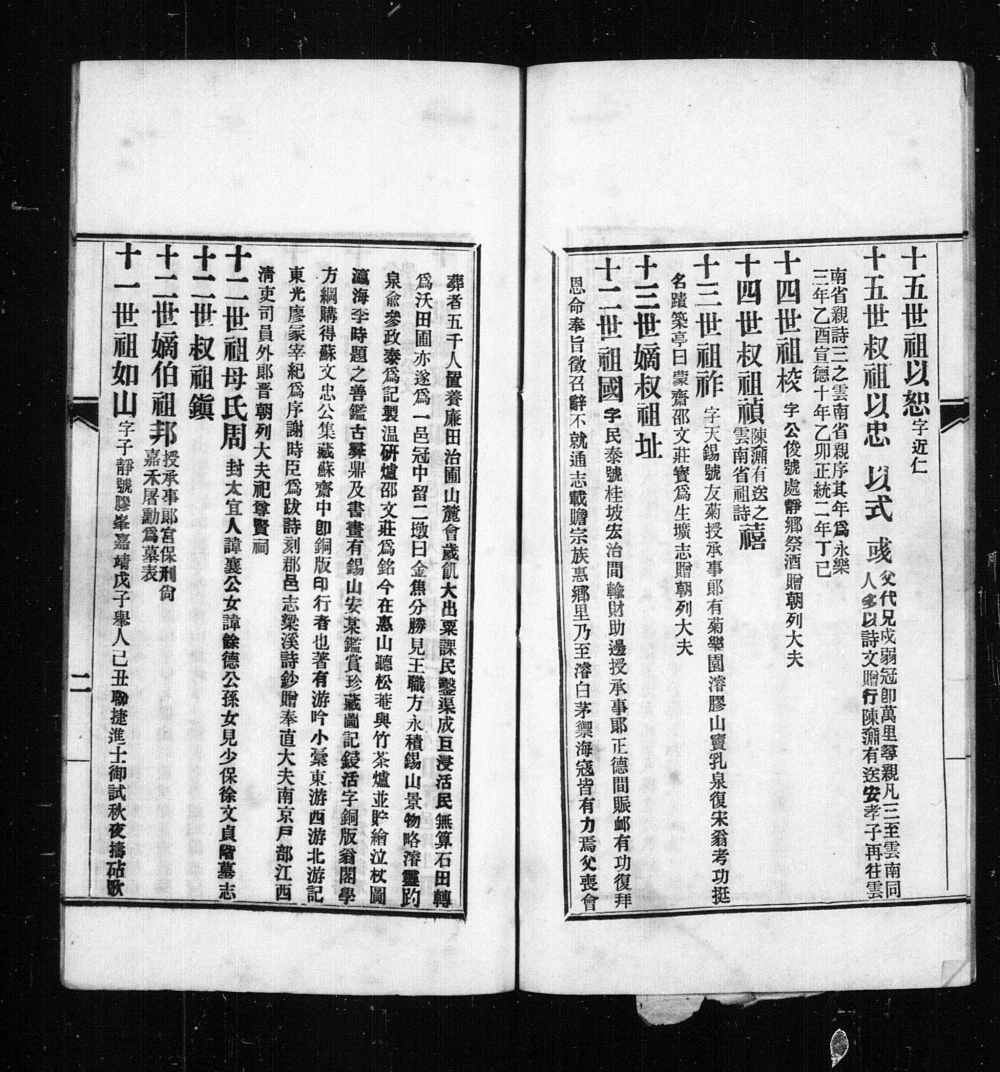 十五世祖以恕字近仁
十五世叔祖以忠 以式 彧父代兄戍弱冠卽萬里尋親凡三至雲南同
人多以詩文贈行陳灦有送安孝子再往雲
南省親詩三之雲南省親序其年爲永樂
三年乙酉宣德十年乙卯正統二年丁巳
十四世祖棱 字公俊號處靜鄉祭酒贈朝列大夫
十四世叔祖禎陳灦有送之
雲南省祖詩禧
十三世祖祚 字天錫號友菊授承事郞有菊舉園濬膠山竇乳泉復宋翁考功挺
名蹟築亭曰蒙齋邵文莊寶爲生壙志贈朝列大夫
十三世嫡叔祖址
十二世祖國 字民泰號桂坡宏治間輸財助邊授承事郞正德間賑卹有功復拜
恩命奉旨徵召辭不就通志載贍宗族惠鄉里乃至濬白茅禦海寇皆有力焉父喪會
葬者五千人置養廉田治圃山麓會歲飢大出粟課民鑿渠成巨浸活民無算石田轉
爲沃田圃亦遂爲一邑冠中留二墩曰金焦分勝見王職方永積錫山景物略濬靈趵
泉俞參政泰爲記製温硏爐邵文莊爲銘今在惠山聽松菴與竹茶爐並貯繪泣杖圖
瀛海李時題之善鑑古彝鼎及書畫有錫山安某鑑賞珍藏圖記鋟活字銅版翁閣學
方綱購得蘇文忠公集藏蘇齋中卽銅版印行者也著有游吟小稾東游西游北游記
東光廖冢宰紀爲序謝時臣爲跋詩刻郡邑志梁溪詩鈔贈奉直大夫南京戸部江西
淸吏司員外郞晋朝列大夫祀尊賢祠
十二世祖母氏周 封太宜人諱襄公女諱餘德公孫女見少保徐文貞階墓志
十二世叔祖鎭
十二世嫡伯祖邦授承事郞宮保刑尙
嘉禾屠勳爲墓表
十一世祖如山字子靜號膠峯嘉靖戊子舉人己丑聯捷進士御試秋夜擣砧歌
二